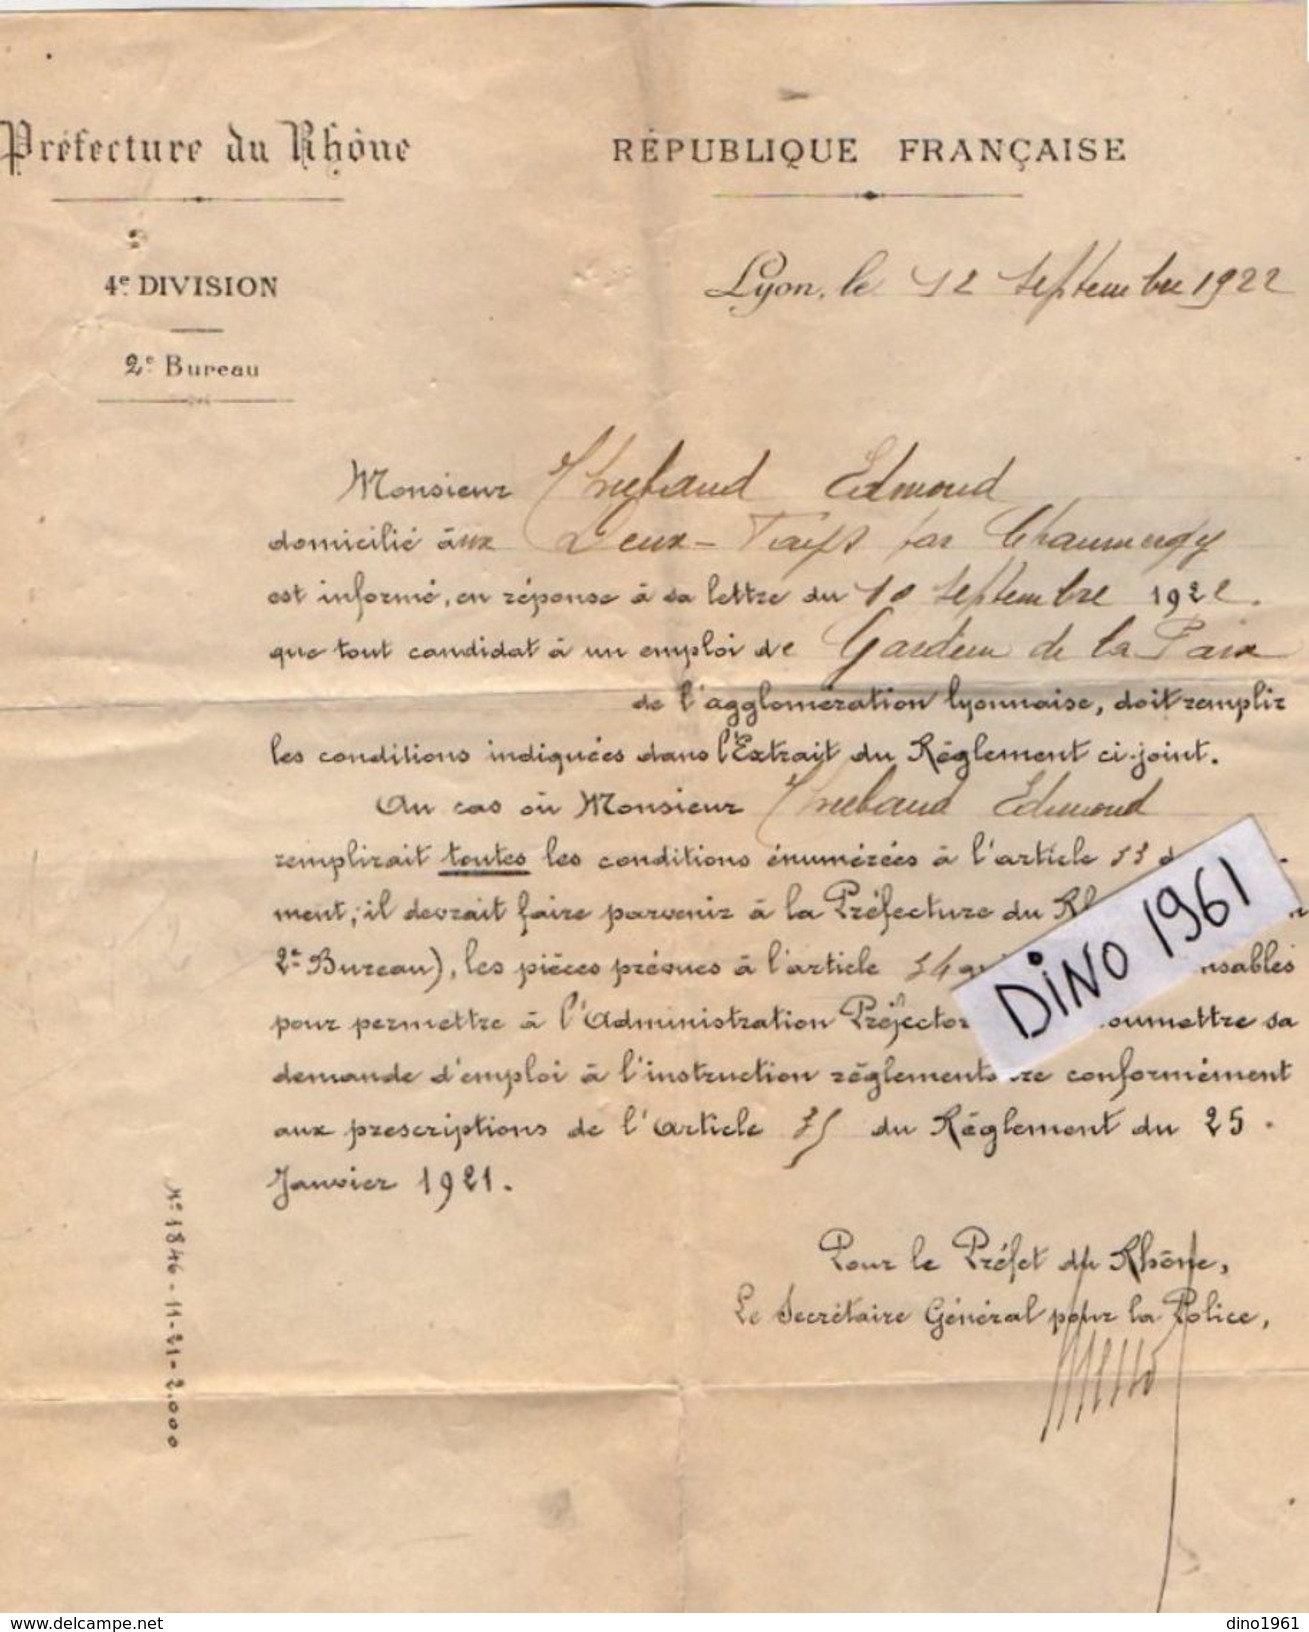 Préfecture du Rhône
RÉPUBLIQUE FRANÇAISE
4e DIVISION
2e Bureau
Lyon, le 12 Septembre 1922
Monsieur Edmond
domicilié aux Deux-Fays par Chaumergy
est informé, en réponse à sa lettre du 10 Septembre 1922.
que tout candidat à un emploi de Gardien de la Paix
de l'agglomération lyonnaise, doit remplir
les conditions indiquées dans l'Extrait du Règlement ci-joint.
Au cas où Monsieur Edmond
remplirait toutes les conditions énumérées à l'article 33
ment, il devrait faire parvenir à la Préfecture du
2e Bureau), les pièces prévues à l'article 34
pour permettre à l'Administration soumettre sa
demande d'emploi à l'instruction conformément
aux prescriptions de l'Article 35 du Règlement du 25
Janvier 1921.
Pour le Préfet du Rhône,
Le Secrétaire Général pour la Police,
No 1846-11-21-2.000
DiNO 1961
www.delcampe.net
dino1961